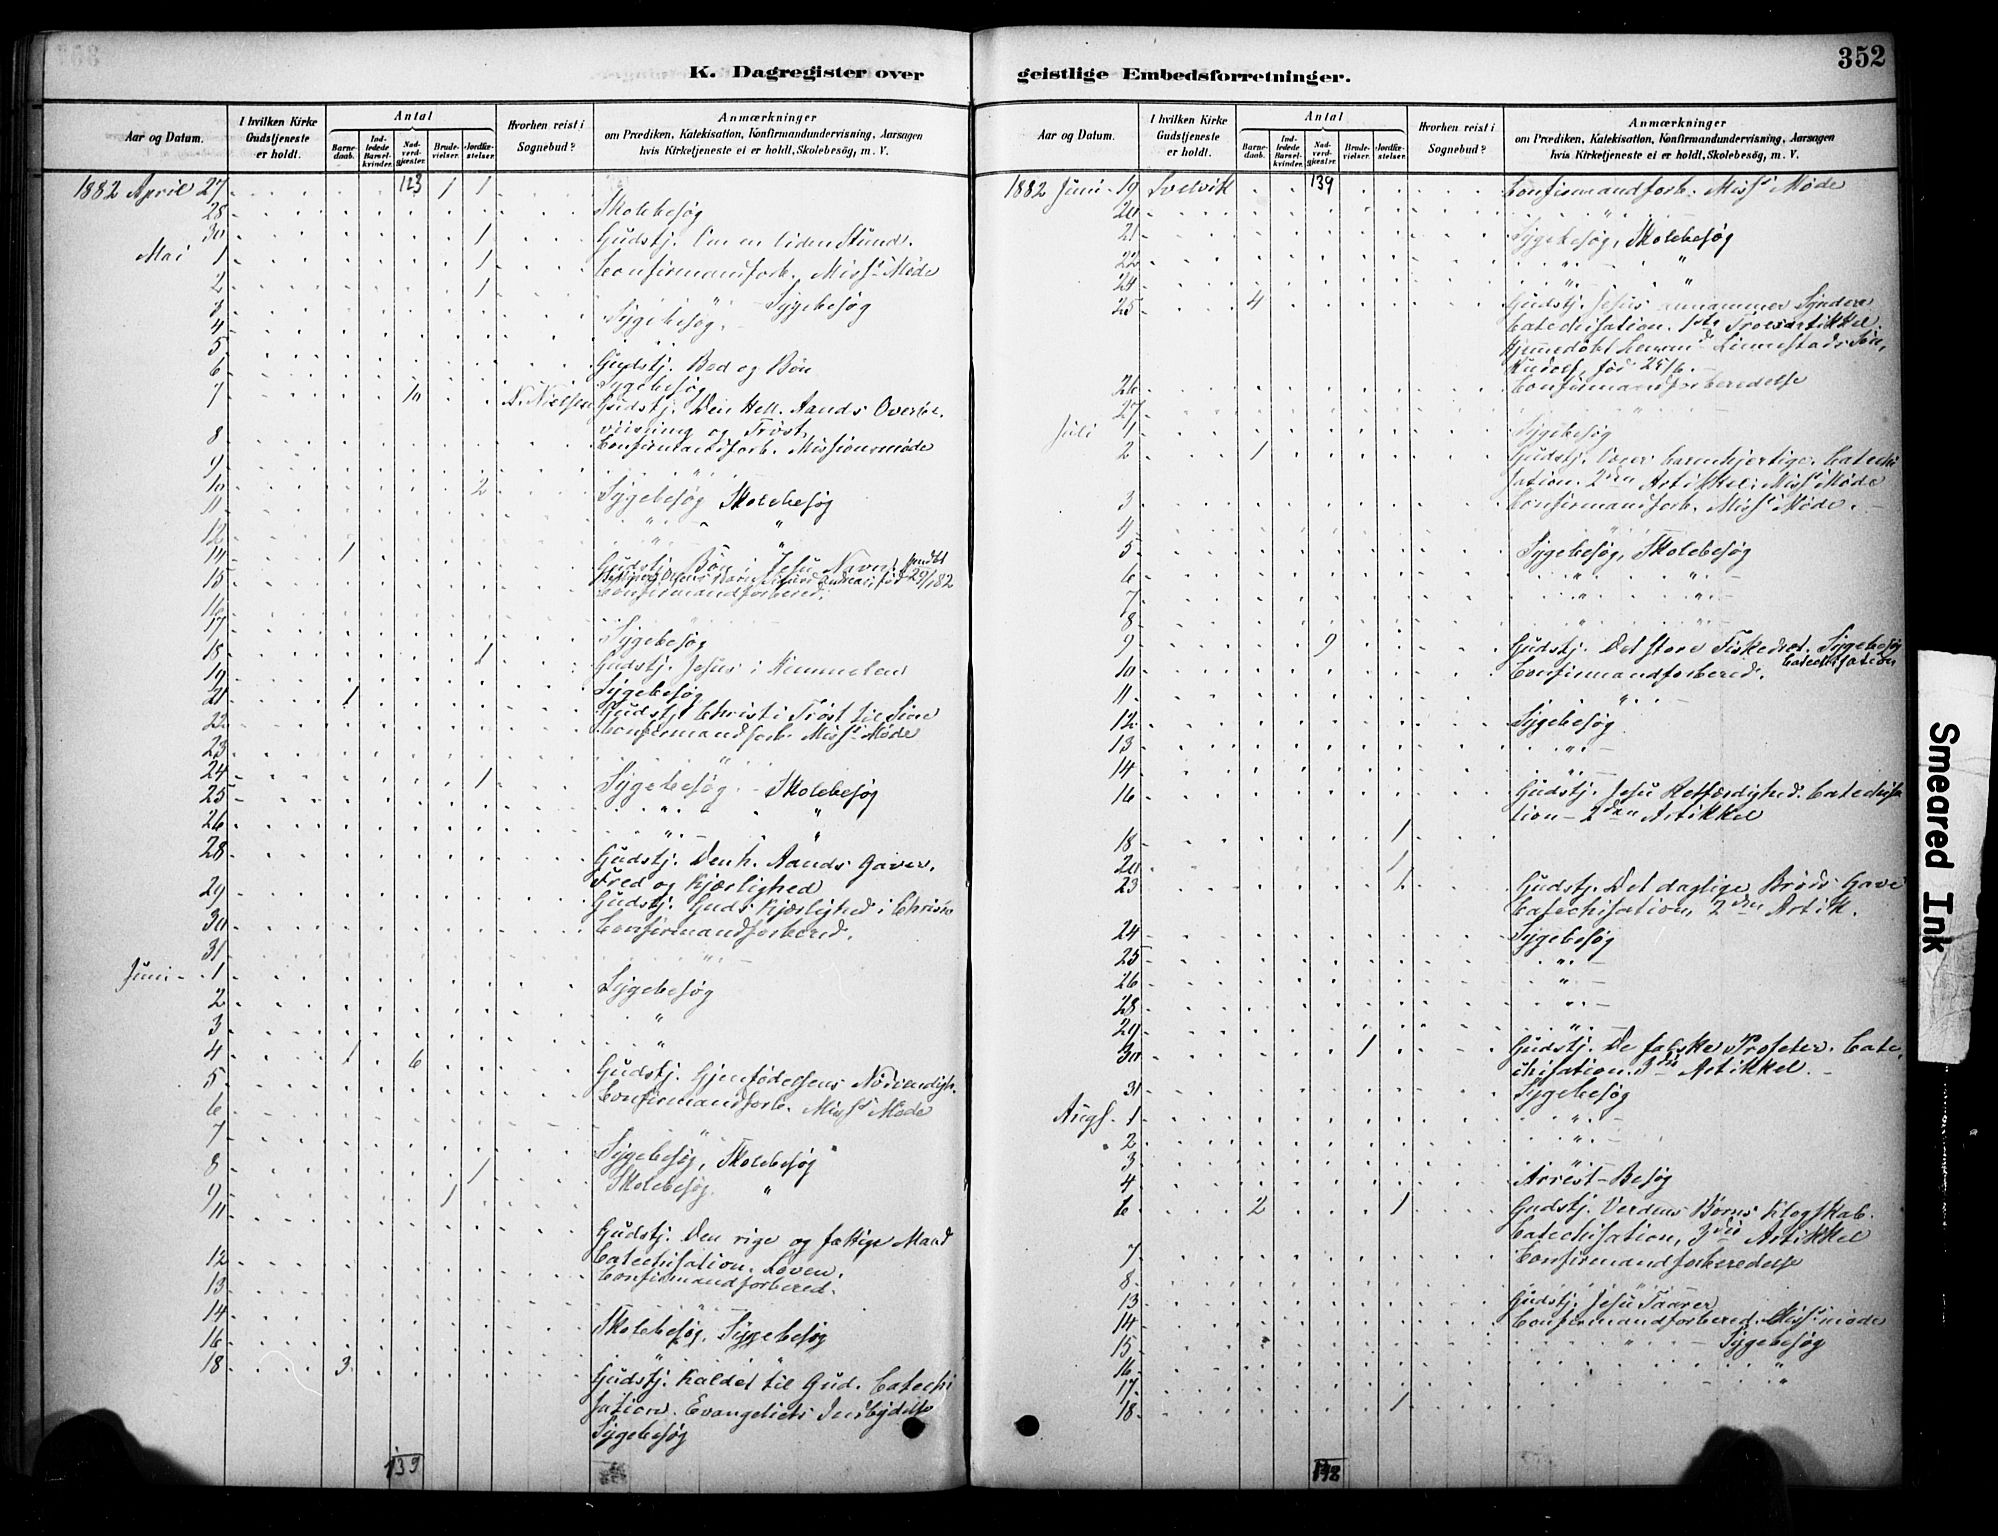 K. Dagregister over
Aar og Datum.
I hvilken Kirke Gudstjeneste er holdt.
Antal
Barne-daab.
Ind-ledede Barsel-kvinder.
Nad-verd-gjæster.
Brude-vielser.
Jordfæ-stelser.
Hvorhen reist i Sognebud?
Anmærkninger
om Prædiken, Katekisation, Konfirmandundervisning, Aarsagen
hvis Kirketjeneste ei er holdt, Skolebesög, m. V.
1882 April 27 123 1 1
28 Skolebesøg
30 1 Gudstj. Om en liden Stund.
Mai 1 1 Confirmandforb. Miss. Møde
2 1 " Sygebesøg
3 Sygebesøg
4 "
5 Gudstj. Bed og Bøn
6 Sygebesøg
7 10 N. Nielsen Gudstj. Den Hell. Aands Overbe-
viisning og Trøst
8 Confirmandforb. Missionsmøde
9 "
10 2 Sygebesøg Skolebesøg
11 " "
12 "
14 1 Gudstj. Bøn i Jesu Navn.
15 Confirmandforbered.
16
17 Sygebesøg
18 1 Gudstj. Jesus i Himmelen
19 Sygebesøg
21 1 Gudstj. Christi Trøst til Sine
22 Confirmandforb. Miss. Møde
23 "
24 1 Sygebesøg Skolebesøg
25 " "
26 " "
28 Gudstj. Den h. Aands Gaver.
Fred og Kjærlighed
29 Gudstj. Guds Kjærlighed i Christo
30 Confirmandforbered.
31 "
Juni 1 Sygebesøg
2 "
3 "
4 1 6 Gudstj. Gjenfødelsens Nødvendigh.
5 Confirmandforb. Miss. Møde
6 "
7 Sygebesøg, Skolebesøg
8 1 Skolebesøg "
9 1
11 Gudstj. Den rige og fattige Mand
Catechisation. Loven.
12 Confirmandforbered.
13 "
14 Skolebesøg, Sygebesøg
16 "
18 3 Gudstj. Kaldet til Gud. Catechi
sation. Evangeliets Indbydelse
Sygebesøg
139
geistlige Embedsforretninger.
352
Aar og Datum.
I hvilken Kirke Gudstjeneste er holdt.
Antal
Barne-daab.
Ind-ledede Barsel-kvinder.
Nad-verd-gjæster.
Brude-vielser.
Jordfæ-stelser.
Hvorhen reist i Sognebud?
Anmærkninger
om Prædiken, Katekisation, Konfirmandundervisning, Aarsagen
hvis Kirketjeneste ei er holdt, Skolebesög, m. V.
1882 Juni 19 Svelvik 139 Confirmandforb. Miss. Møde
20 "
21 Sygebesøg, Skolebesøg
22 " "
24 " "
25 4 Gudstj. Jesus annammer Syndere
Catechisation. 1ste Troesartikkel.
Hjemmedøbt
26 Confirmandforberedelse
27
Juli 1 Sygebesøg
2 1 Gudstj. Værer barmhjertige. Catechi
sation. 2den Artikkel. Miss. Møde
3 Confirmandforb. Miss. Møde.
4 "
5 Sygebesøg, Skolebesøg
6 " "
7 " "
8 " "
9 9 Gudstj. Det store Fiskedræt. Sygebesøg
Catechisation
10 Confirmandforbered.
11 "
12 Sygebesøg
13 "
14 "
16 Gudstj. Jesu Retfærdighed. Catechisa
tion 2den Artikkel
18 1
20 1
23 1 Gudstj. Det daglige Brøds Gave
Catechisation, 2den Artik.
24 Sygebesøg
25 "
26 "
28 "
29 "
30 1 Gudstj. De falske Profeter. Cate
chisation. 3die Artikkel.
31 Sygebesøg
Augs. 1 "
2 "
3 "
4 Arrest-Besøg
6 2 1 Gudstj. Verdens Børns Klogskab.
Catechisation, 3die Artikkel
7 Confirmandforberedelse
8 "
13 Gudstj. Jesu Taarer
14 Confirmandforbered. Miss. møde
15 " Sygebesøg
16 "
17 "
18 1
Smeared Ink